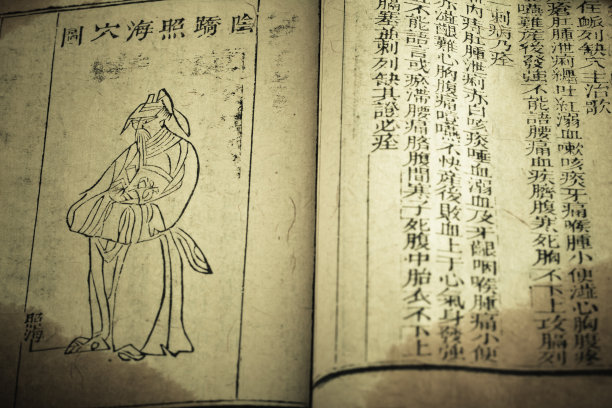 陰蹻照海穴圖
照海
列缺穴主治歌
瘡肛腫泄痢纏吐紅溺血嗽咳痰牙痛喉腫小便澁心胸腹疼
噎嚥難產後發強不能語腰痛血疾臍腹寒死胎不下上攻膈列
刺病乃痊
內痔肛腫泄痢赤白咳痰唾血溺血及牙齦咽喉腫痛小便
赤澁難心胸腹痛噎嚥不快產後敗血上于心氣身發強
不能語言或瘀滯腰痛臍腹間寒子死腹中胎衣不下上
膈塞並刺列缺其證必痊